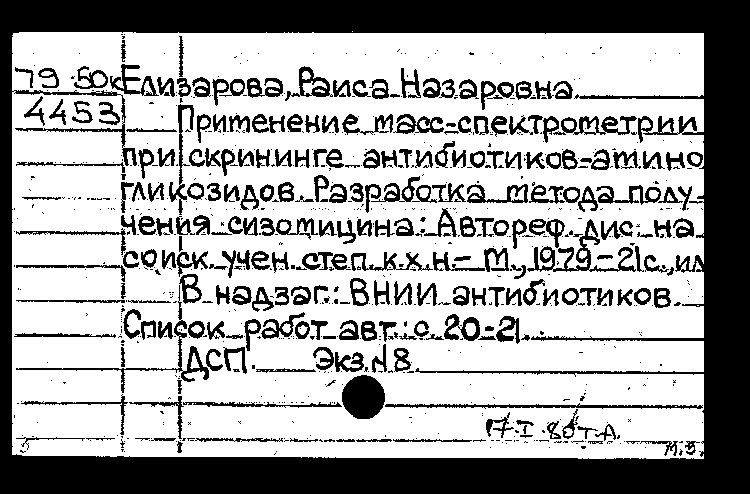 79-50к Елизарова, Раиса Назаровна
4453 Применение масс-спектрометрии
при скрининге антибиотиков-амино
гликозидов. Разработка метода полу-
чения сизомицина: Автореф. дис. на
соиск. учен. степ. к.х.н.- М., 1979-21с., ил
В надзаг.: ВНИИ антибиотиков.
Список работ авт.: с. 20-21.
ДСП. Экз.№8.
17.I.80 Т.А.
5 М.З.